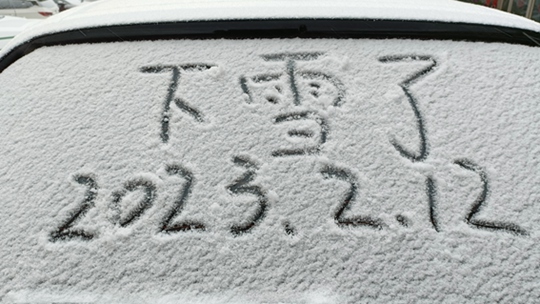 下雪了
2023.2.12